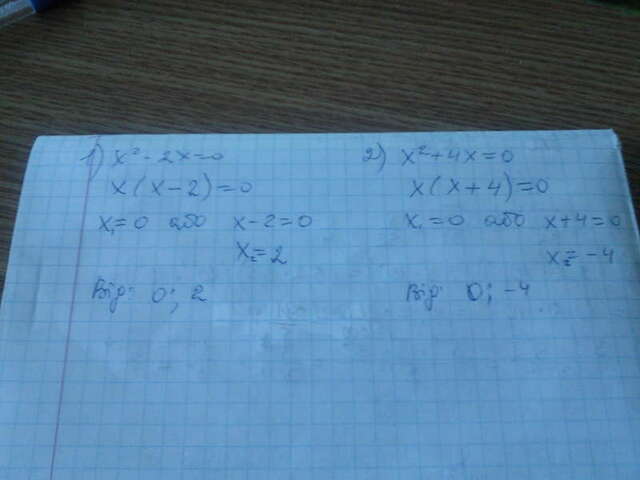 1) x² - 2x = 0
x(x - 2) = 0
x₁ = 0 або x - 2 = 0
x₂ = 2
Від: 0; 2
2) x² + 4x = 0
x(x + 4) = 0
x₁ = 0 або x + 4 = 0
x₂ = -4
Від: 0; -4